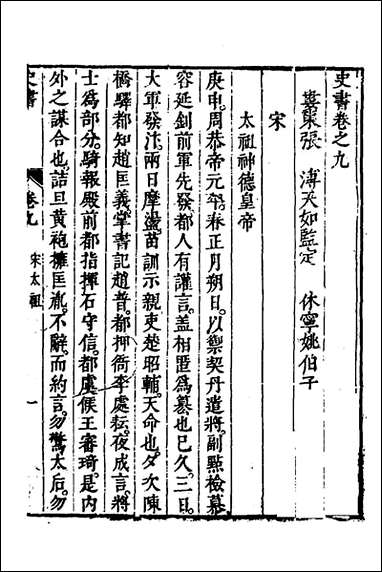 史書卷之九
婁東張 溥天如監定 休寧姚伯子
宋
太祖神德皇帝
庚申。周恭帝元年。春正月朔日。以禦契丹遣將。副點檢慕
容延釗前軍先發。都人有讙言。盖相匿為慕也已久。三日。
大軍發汴。兩日摩盪。苗訓示親吏楚昭輔。天命也。夕次陳
橋驛。都知趙匡義。掌書記趙普。都押衙李處耘。夜成言。將
士為部分。騎報殿前都指揮石守信。都虞候王審琦。是內
外之謀合也。詰旦黃袍擁匡胤。不辭。而約言。勿驚太后。勿
史書 卷九 宋太祖 一